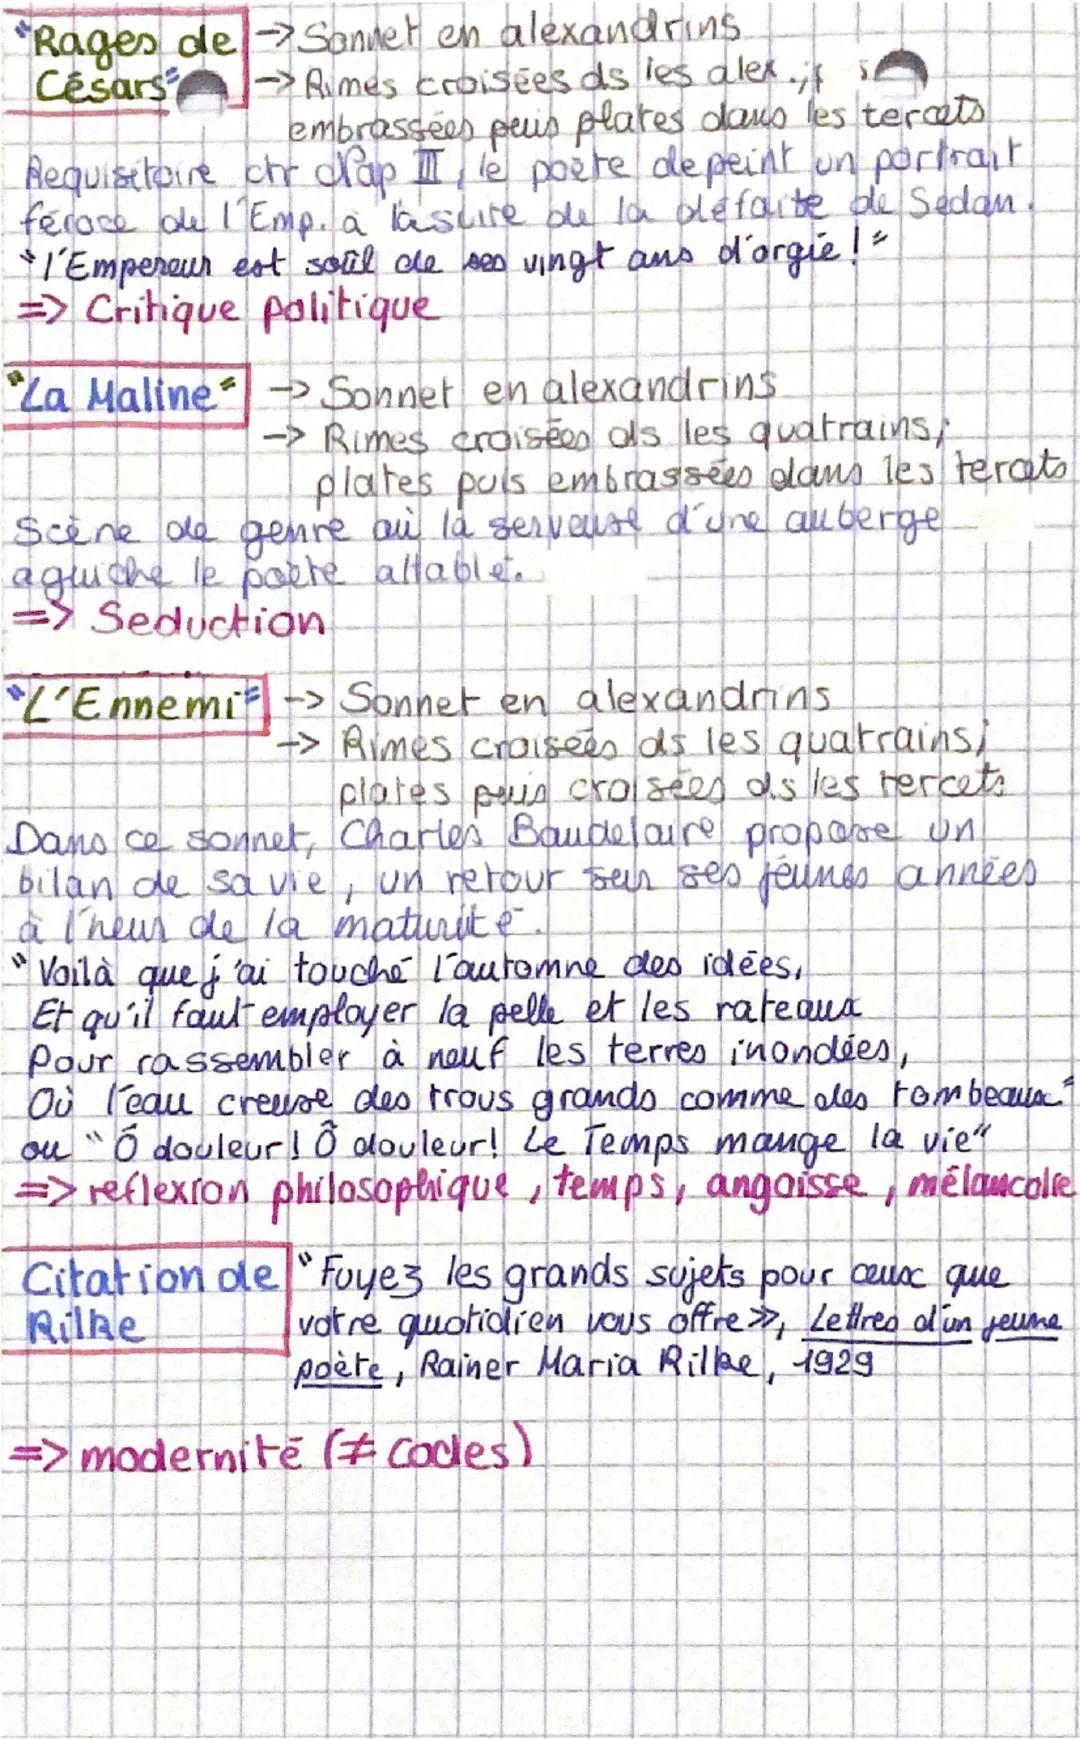 "Rages de Césars"
→ Sonnet en alexandrins
→ Rimes croisées ds les alex.;
embrassées puis plates dans les tercets
Requisitoire ctr Nap III, le poète depeint un portrait
féroce de l'Emp. à la suite de la défaite de Sedan.
"l'Empereur est soûl de ses vingt ans d'orgie!"
=> Critique politique
"La Maline"
→ Sonnet en alexandrins
-> Rimes croisées ds les quatrains;
plates puis embrassées dans les tercets
Scène de genre où la serveuse d'une auberge
aguiche le poète attablé.
=> Seduction
"L'Ennemi"
-> Sonnet en alexandrins
-> Rimes croisées ds les quatrains;
plates puis croisées ds les tercets
Dans ce sonnet, Charles Baudelaire propose un
bilan de sa vie, un retour sur ses jeunes années
à l'heur de la maturité.
"Voilà que j'ai touché l'automne des idées,
Et qu'il faut employer la pelle et les rateaux
Pour rassembler à neuf les terres inondées,
Où l'eau creuse des trous grands comme des tombeaux"
ou "Ô douleur! Ô douleur! Le Temps mange la vie"
=> reflexion philosophique, temps, angoisse, mélancolie
Citation de
Rilke
"Fuyez les grands sujets pour ceux que
votre quotidien vous offre», Lettres d'un jeune
poète, Rainer Maria Rilke, 1929
=> modernité (≠ codes)